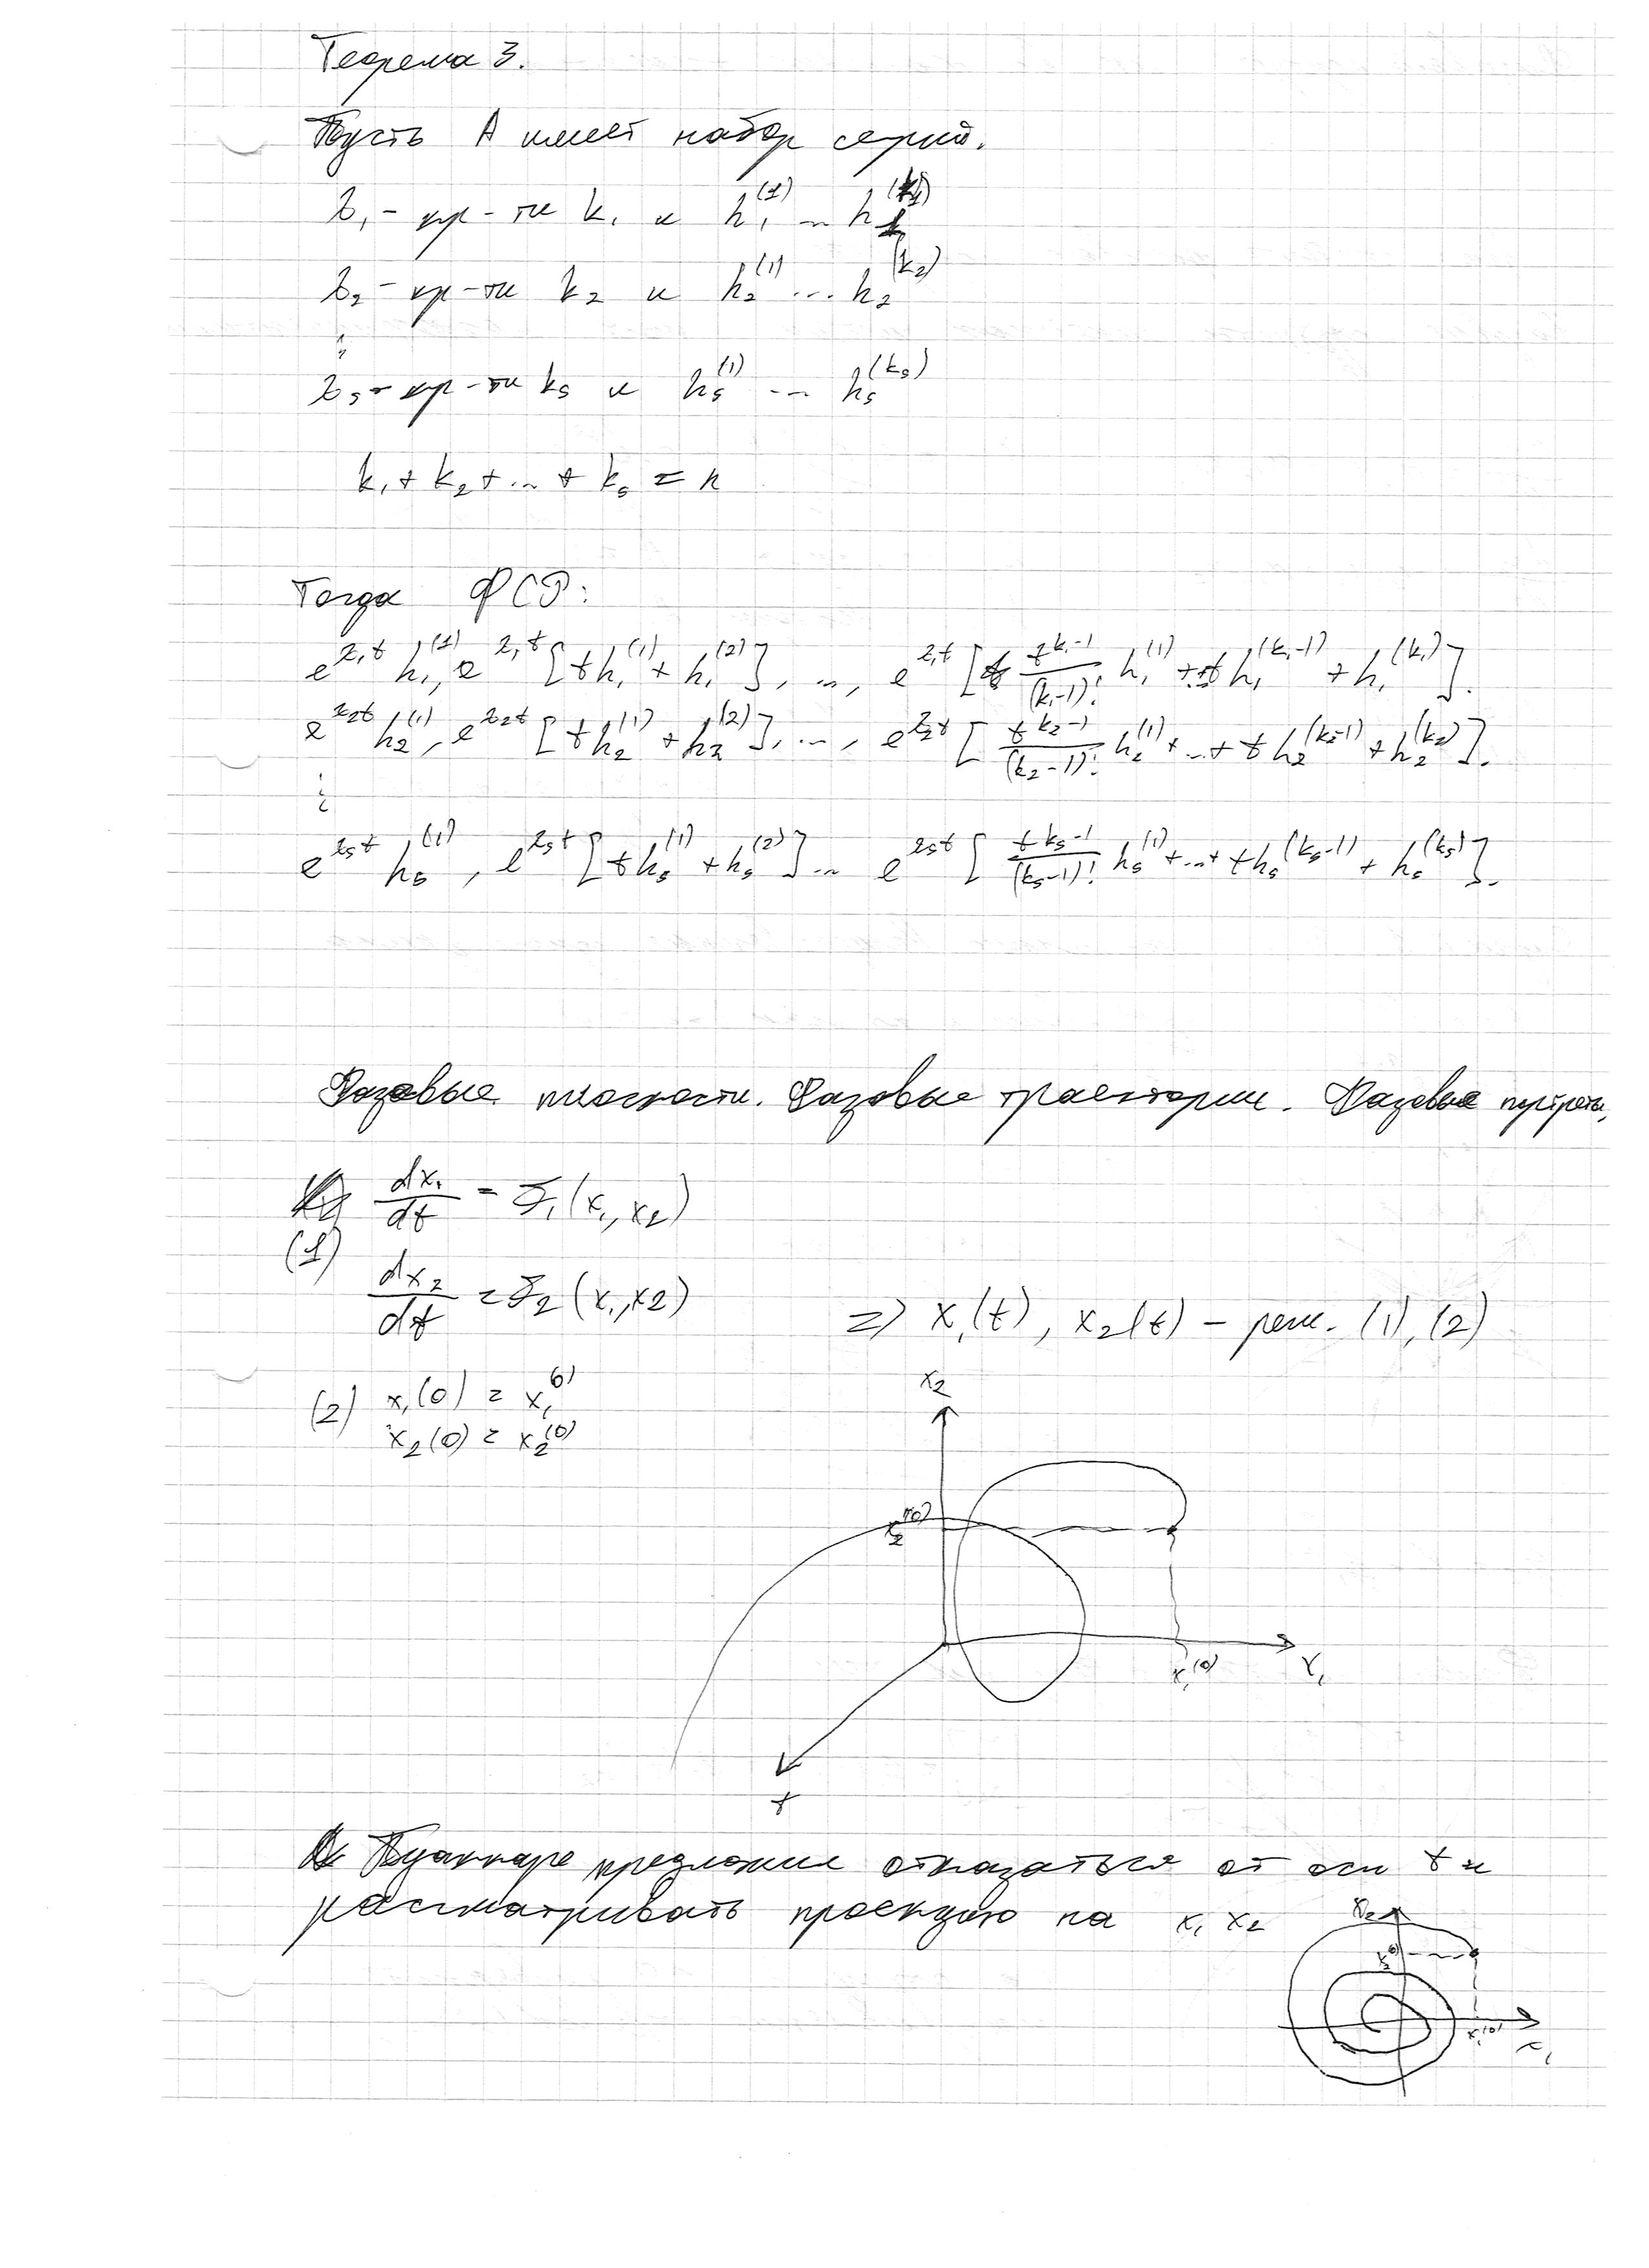 Теорема 3.
Пусть A имеет набор серий.
λ₁ - кр-ти k₁ и h₁⁽¹⁾ ... h₁⁽ᵏ¹⁾
λ₂ - кр-ти k₂ и h₂⁽¹⁾ ... h₂^(k₂)
⋮
λₛ - кр-ти kₛ и hₛ⁽¹⁾ ... hₛ^(kₛ)
k₁ + k₂ + ... + kₛ = n
Тогда ФСР:
e^{λ₁t} h₁^(1), e^{λ₁t} [t h₁^(1) + h₁^(2)], ..., e^{λ₁t} [t^{k₁-1}/(k₁-1)! h₁^(1) + ... + t h₁^(k₁-1) + h₁^(k₁)].
e^{λ₂t} h₂^(1), e^{λ₂t} [t h₂^(1) + h₂^(2)], ..., e^{λ₂t} [t^{k₂-1}/(k₂-1)! h₂^(1) + ... + t h₂^(k₂-1) + h₂^(k₂)].
⋮
e^{λₛt} hₛ^(1), e^{λₛt} [t hₛ^(1) + hₛ^(2)] ... e^{λₛt} [t^{kₛ-1}/(kₛ-1)! hₛ^(1) + ... + t hₛ^(kₛ-1) + hₛ^(kₛ)].
Фазовые плоскости. Фазовые траектории. Фазовые портреты.
dx₁/dt = F₁(x₁, x₂)
(1)
dx₂/dt = F₂(x₁, x₂)
=> x₁(t), x₂(t) - реш. (1), (2)
(2) x₁(0) = x₁^(0)
x₂(0) = x₂^(0)
x₂
x₂^(0)
x₁^(0)
x₁
t
Пуанкаре предложил отказаться от оси t и
рассматривать проекцию на x₁ x₂
x₂
x₂^(0)
x₁^(0)
x₁